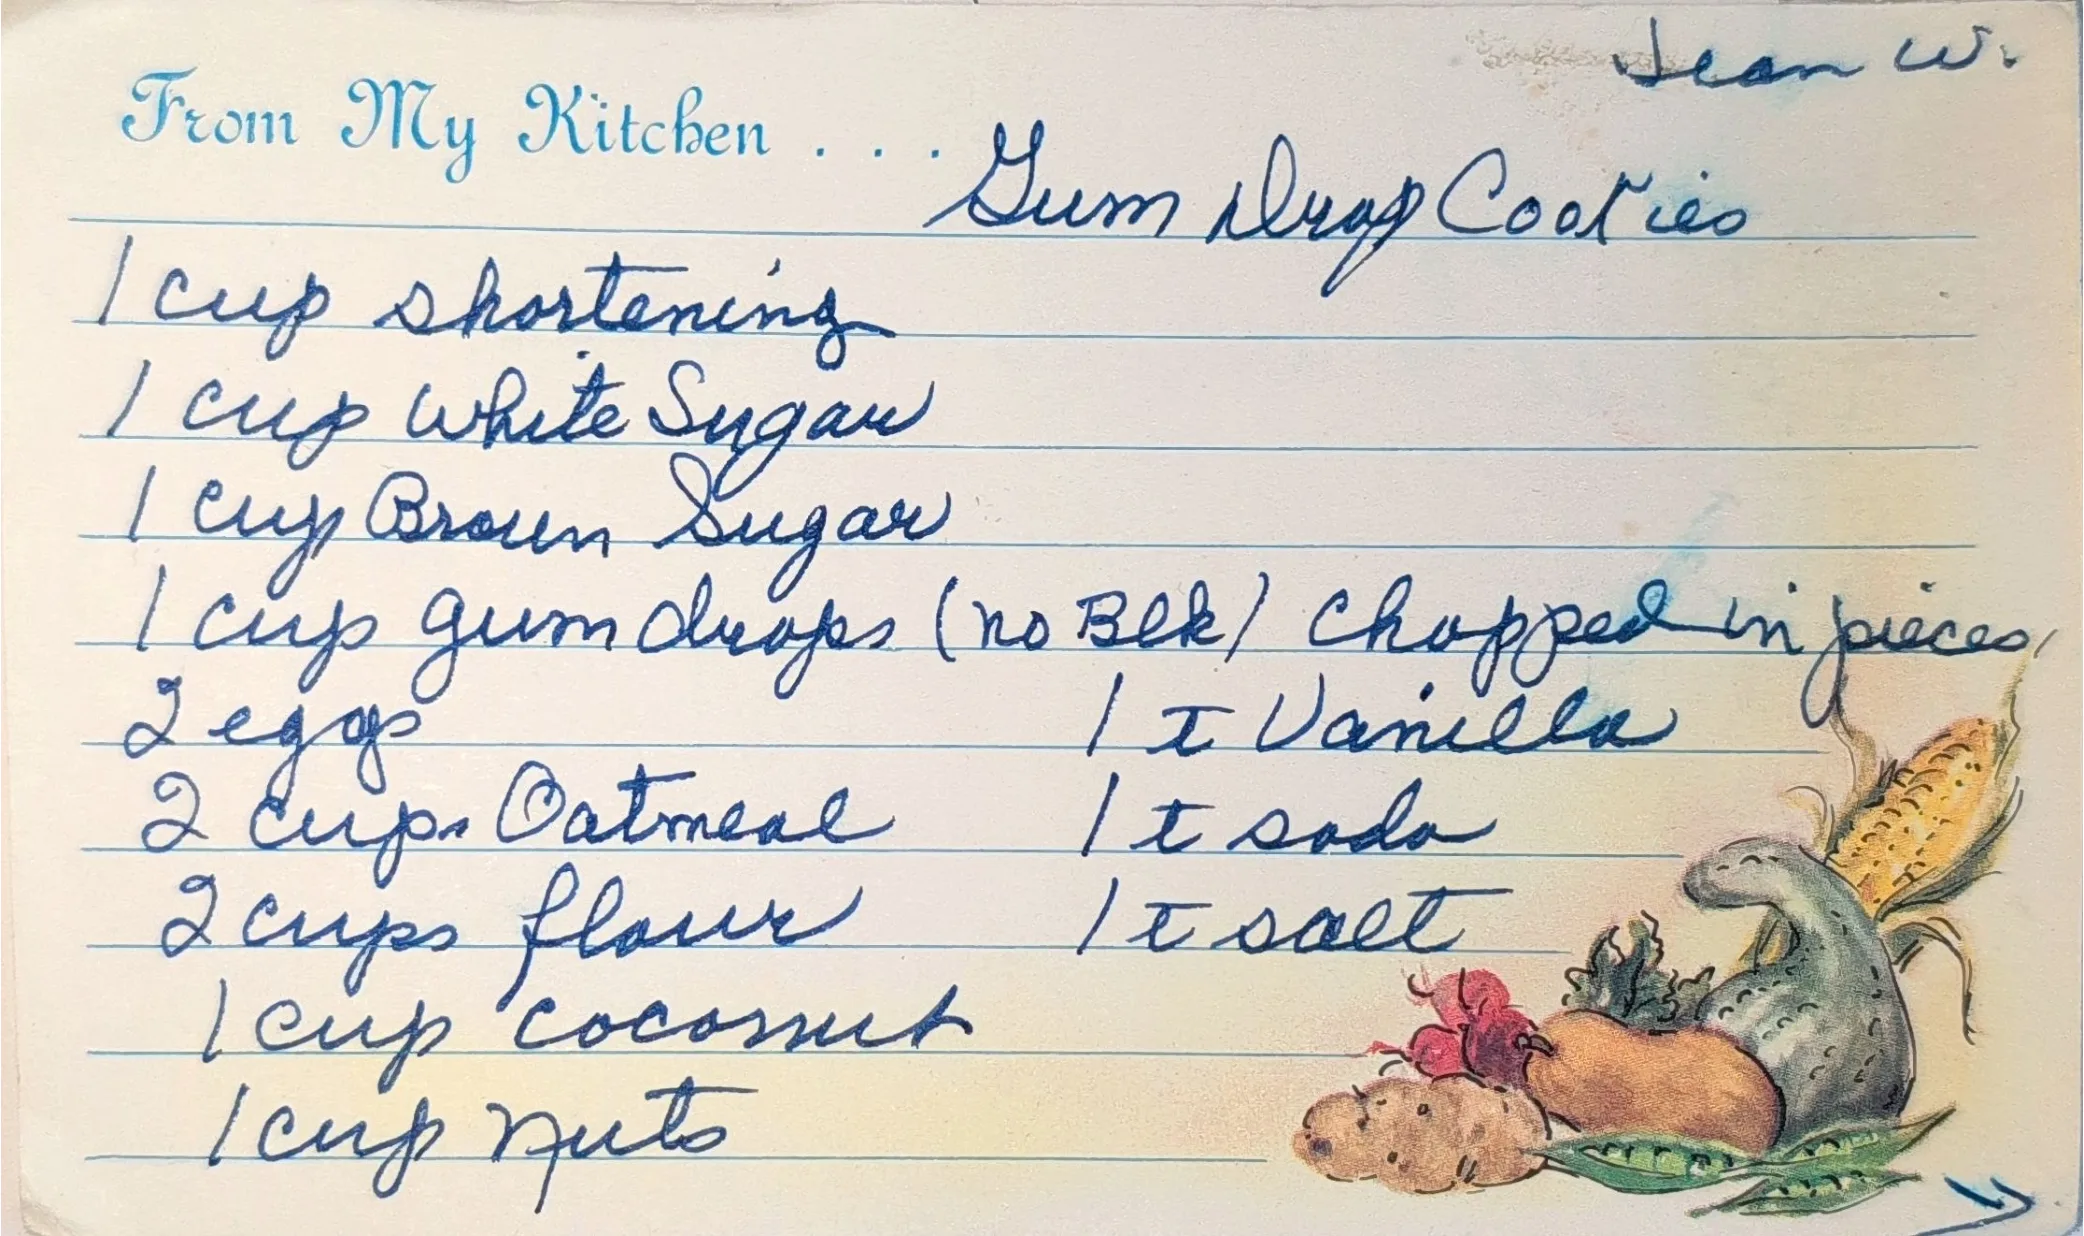 Jean W.
From My Kitchen . . .
Gum Drop Cookies
1 cup shortening
1 cup White Sugar
1 cup Brown Sugar
1 cup gum drops (no Blk) chopped in pieces
2 eggs 1 t Vanilla
2 cups Oatmeal 1 t soda
2 cups flour 1 t salt
1 cup coconut
1 cup nuts